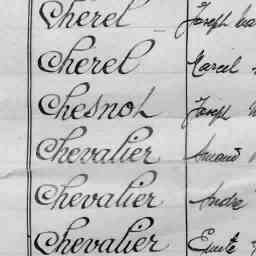 Cherel Joseph
Cherel Marcel
Chesnot Joseph
Chevalier Amand
Chevalier André
Chevalier